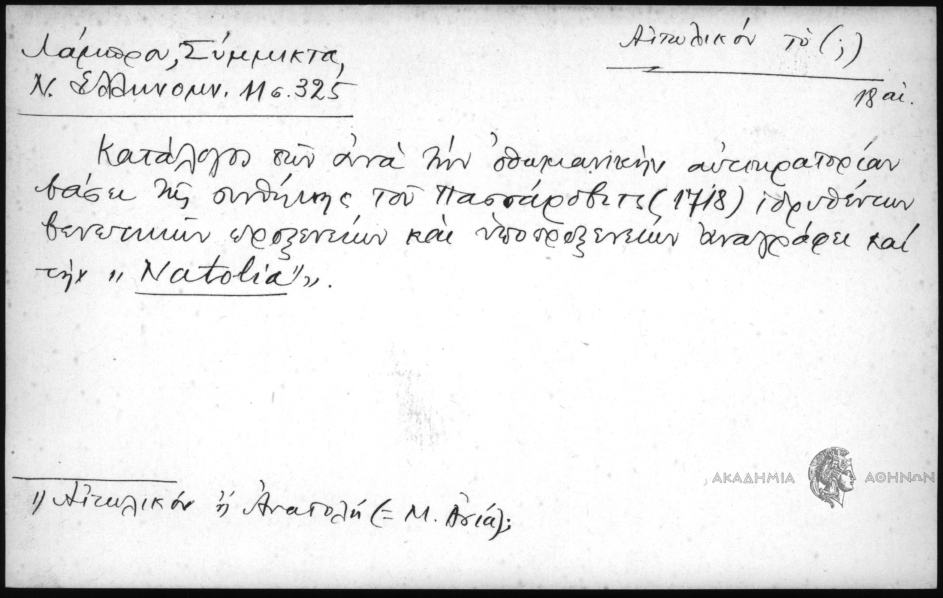 Λάμπρου, Σύμμικτα,
Ν. Ἑλληνομν. 11 σ. 325
Αἰτωλικόν τὸ (;)
18 αἰ.
Κατάλογος τῶν ἀνὰ τὴν ὀθωμανικὴν αὐτοκρατορίαν
βάσει τῆς συνθήκης τοῦ Πασσάροβιτς (1718) ἱδρυθέντων
βενετικῶν προξενείων καὶ ὑποπροξενείων ἀναγράφει καὶ
τὴν „Natolia¹⁾„.
ΑΚΑΔΗΜΙΑ ΑΘΗΝΩΝ
1) Αἰτωλικόν ἢ Ἀνατολή (= Μ. Ἀσία);